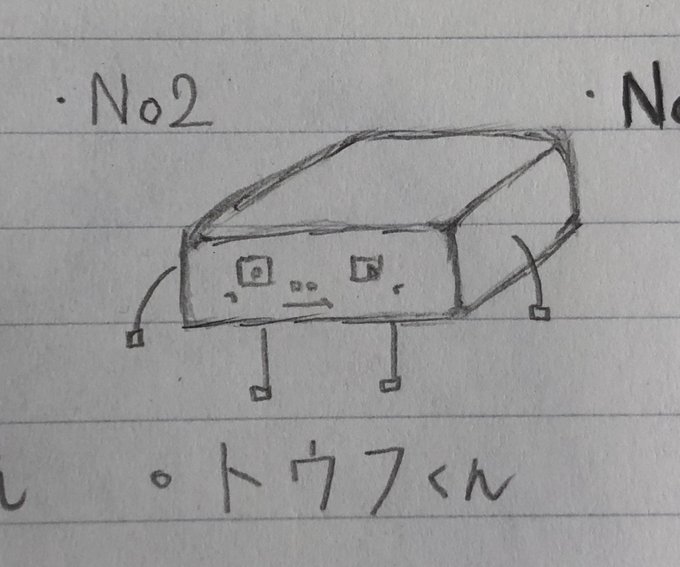 ・No2
・No
・トウフくん